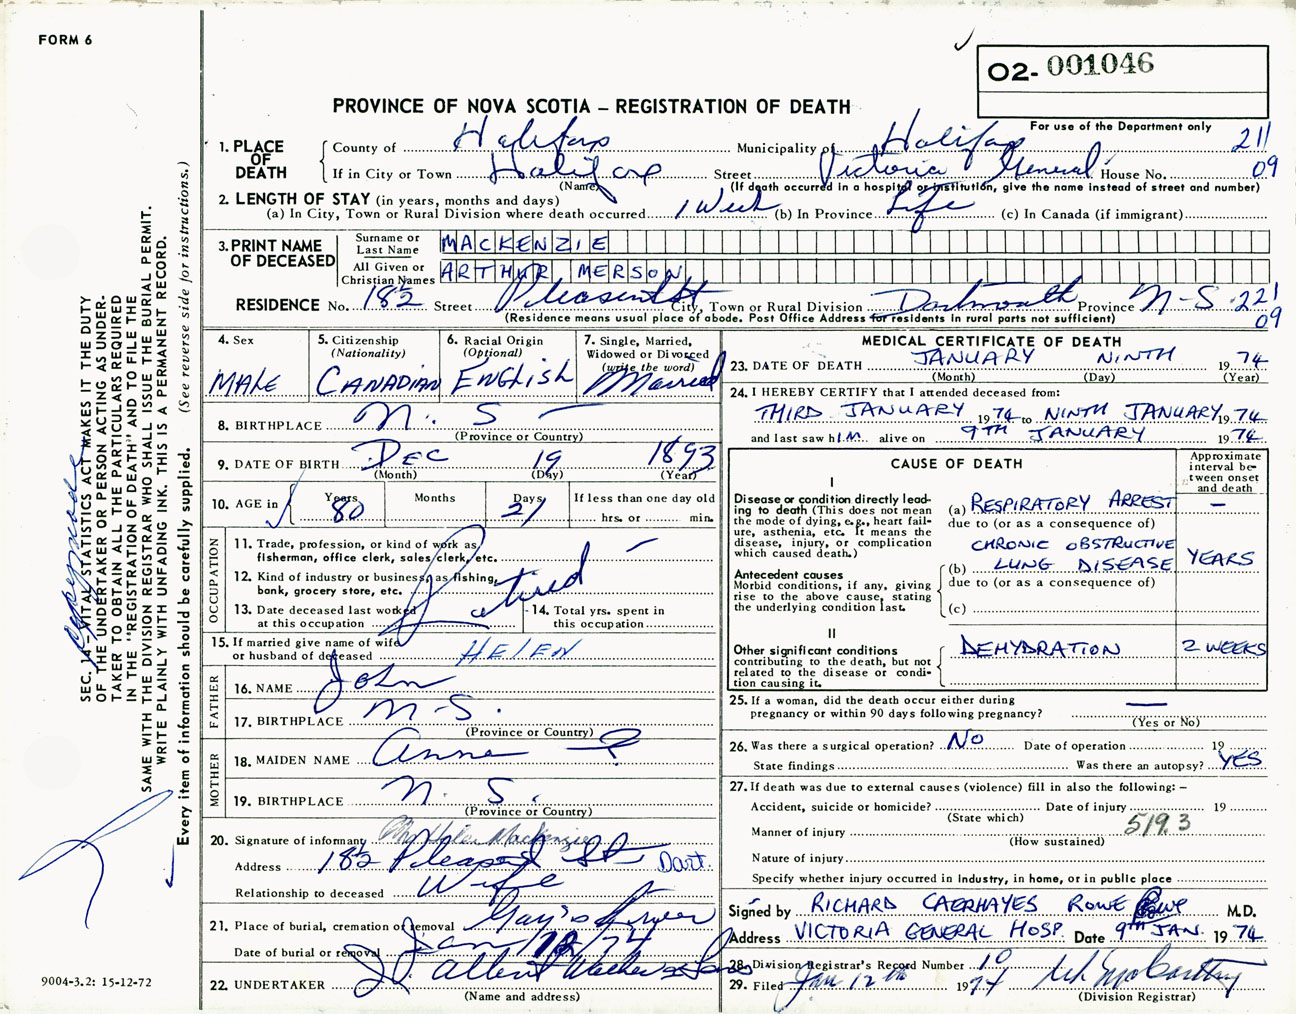 FORM 6
O2- 001046
PROVINCE OF NOVA SCOTIA – REGISTRATION OF DEATH
For use of the Department only
1. PLACE OF DEATH
County of Halifax Municipality of Halifax 211
If in City or Town Halifax Street Victoria General House No. 09
(Name) (If death occurred in a hospital or institution, give the name instead of street and number)
2. LENGTH OF STAY (in years, months and days)
(a) In City, Town or Rural Division where death occurred 1 Week (b) In Province Life (c) In Canada (if immigrant)
3. PRINT NAME OF DECEASED
Surname or Last Name MACKENZIE
All Given or Christian Names ARTHUR MERSON
RESIDENCE No. 18½ Street Pleasant St City, Town or Rural Division Dartmouth Province N-S 221
(Residence means usual place of abode. Post Office Address for residents in rural parts not sufficient) 09
4. Sex
MALE
5. Citizenship
(Nationality)
CANADIAN
6. Racial Origin
(Optional)
ENGLISH
7. Single, Married,
Widowed or Divorced
(write the word)
Married
8. BIRTHPLACE N. S –
(Province or Country)
9. DATE OF BIRTH Dec 19 1893
(Month) (Day) (Year)
10. AGE in
Years Months Days If less than one day old
80 21 hrs. or min.
OCCUPATION
11. Trade, profession, or kind of work as
fisherman, office clerk, sales clerk, etc. –
12. Kind of industry or business, as fishing,
bank, grocery store, etc. Retired
13. Date deceased last worked
at this occupation
14. Total yrs. spent in
this occupation
15. If married give name of wife
or husband of deceased HELEN
FATHER
16. NAME John
17. BIRTHPLACE N-S.
(Province or Country)
MOTHER
18. MAIDEN NAME Anne – ?
19. BIRTHPLACE N. S.
(Province or Country)
20. Signature of informant Mrs Helen Mackenzie
Address 18½ Pleasant St Dart.
Relationship to deceased Wife
21. Place of burial, cremation or removal
Date of burial or removal Jan/12/74
22. UNDERTAKER J. Albert Walker & Sons
(Name and address)
MEDICAL CERTIFICATE OF DEATH
23. DATE OF DEATH JANUARY NINTH 1974
(Month) (Day) (Year)
24. I HEREBY CERTIFY that I attended deceased from:
THIRD JANUARY 1974 to NINTH JANUARY 1974
and last saw hIM alive on 9TH JANUARY 1974
CAUSE OF DEATH
Approximate interval between onset and death
I
Disease or condition directly leading to death (This does not mean the mode of dying, e.g., heart failure, asthenia, etc. It means the disease, injury, or complication which caused death.)
(a) RESPIRATORY ARREST –
due to (or as a consequence of)
Antecedent causes
Morbid conditions, if any, giving rise to the above cause, stating the underlying condition last.
CHRONIC OBSTRUCTIVE
(b) LUNG DISEASE YEARS
due to (or as a consequence of)
(c)
II
Other significant conditions
contributing to the death, but not related to the disease or condition causing it.
DEHYDRATION 2 WEEKS
25. If a woman, did the death occur either during
pregnancy or within 90 days following pregnancy? –
(Yes or No)
26. Was there a surgical operation? NO Date of operation 19
State findings Was there an autopsy? YES
27. If death was due to external causes (violence) fill in also the following: –
Accident, suicide or homicide? Date of injury 19
(State which)
Manner of injury 519.3
(How sustained)
Nature of injury
Specify whether injury occurred in Industry, in home, or in public place
Signed by RICHARD CAERHAYES ROWE Rowe M.D.
Address VICTORIA GENERAL HOSP. Date 9TH JAN. 1974
28. Division Registrar's Record Number 10
29. Filed Jan 12th 1974
(Division Registrar)
SEC. 14 – VITAL STATISTICS ACT MAKES IT THE DUTY
OF THE UNDERTAKER OR PERSON ACTING AS UNDERTAKER TO OBTAIN ALL THE PARTICULARS REQUIRED
IN THE "REGISTRATION OF DEATH" AND TO FILE THE
SAME WITH THE DIVISION REGISTRAR WHO SHALL ISSUE THE BURIAL PERMIT.
WRITE PLAINLY WITH UNFADING INK. THIS IS A PERMANENT RECORD.
Every item of information should be carefully supplied. (See reverse side for instructions.)
9004-3.2: 15-12-72